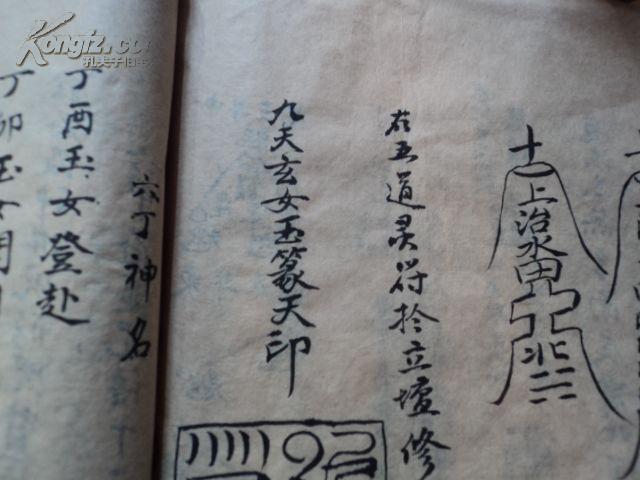 十一
上治水田
右五道灵符於立壇修
九天玄女玉篆天印
六丁神名
丁酉玉女登赴
丁卯玉女
Kongfz.com
孔夫子旧书